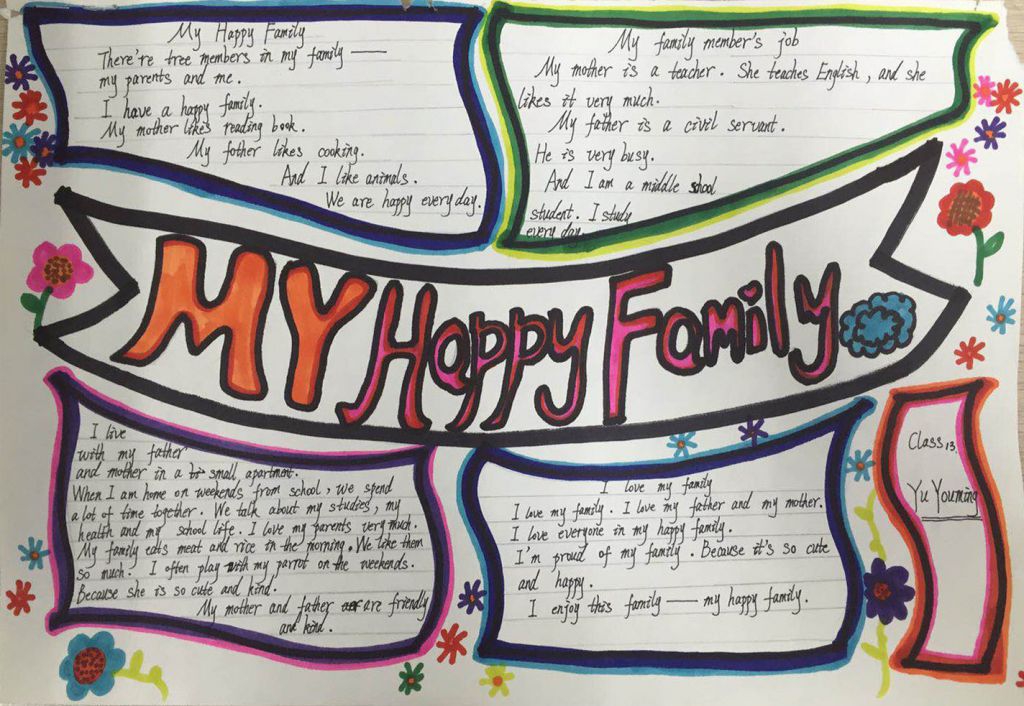 My Happy Family
There're tree members in my family —
my parents and me.
I have a happy family.
My mother likes reading book.
My fother likes cooking.
And I like animals.
We are happy every day.
My family member's job
My mother is a teacher. She teaches English, and she
likes it very much.
My father is a civil servant.
He is very busy.
And I am a middle school
student. I study
every day.
MY Happy Family
I live
with my father
and mother in a small apartment.
When I am home on weekends from school, we spend
a lot of time together. We talk about my studies, my
health and my school life. I love my parents very much.
My family eats meat and rice in the morning. We like them
so much. I often play with my parrot on the weekends.
Because she is so cute and kind.
My mother and father are friendly
and kind.
I love my family
I love my family. I love my father and my mother.
I love everyone in my happy family.
I'm proud of my family. Because it's so cute
and happy.
I enjoy this family — my happy family.
Class 13
Yu Youming